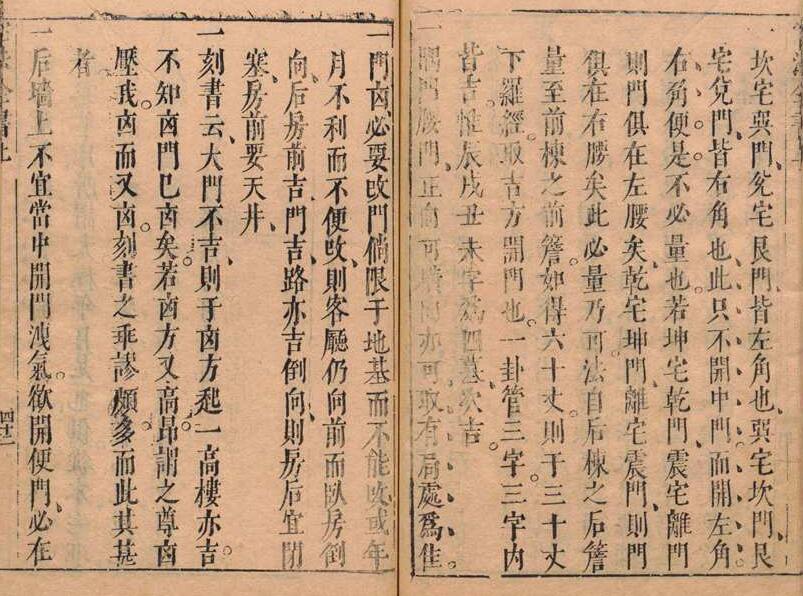 坎宅巽門兌宅艮門皆左角也巽宅坎門艮
宅兌門皆右角也此只不開中門而開左角
右角便是不必量也若坤宅乾門震宅離門
則門俱在左腰矣乾宅坤門離宅震門則門
俱在右腰矣此必量乃可法自后棟之后簷
量至前棟之前簷如得六十丈則于三十丈
下羅經取吉方開門也一卦管三字三字內
皆吉惟辰戌丑未字為四墓次吉
一隅門腰門正向可墳向亦可取有局處為佳
一門㐫必要改門倘限于地基而不能改或年
月不利而不便改則客廳仍向前而臥房倒
向后房前吉門吉路亦吉倒向則房后宜閉
塞房前要天井
一刻書云大門不吉則于㐫方起一高樓亦吉
不知㐫門已㐫矣若㐫方又高昂謂之尊㐫
壓我㐫而又㐫刻書之乖謬頗多而此其甚
者
一后墻上不宜當中開門洩氣欲開便門必在
四十二